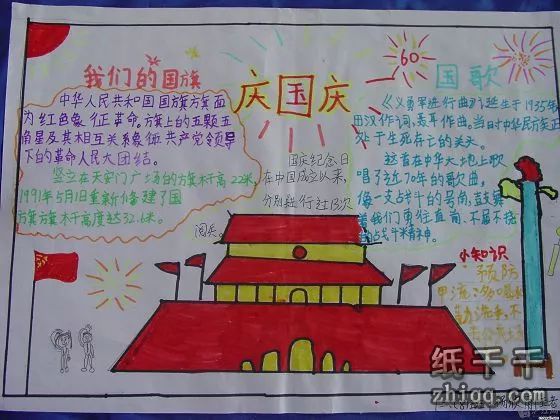 我们的国旗
中华人民共和国国旗旗面
为红色象征革命,旗上的五颗五
角星及其相互关系象征共产党领导
下的革命人民大团结。
竖立在天安门广场的旗杆高22米,
1991年5月1日重新修建了国
旗旗杆高度达32.6米。
庆国庆
60
国庆纪念日
在中国成立以来,
分别进行过13次
阅兵
国歌
《义勇军进行曲》诞生于1935年
田汉作词,聂耳作曲。当时中华民族正
处于生死存亡的关头。
这首在中华大地上歌
唱了近70年的歌曲,
像一支战斗的号角,鼓舞
着我们勇往直前、不屈不挠
的战斗精神。
小知识
预防
甲流:多喝水
勤洗手,不
去公共场
纸千千
zhiqq.com